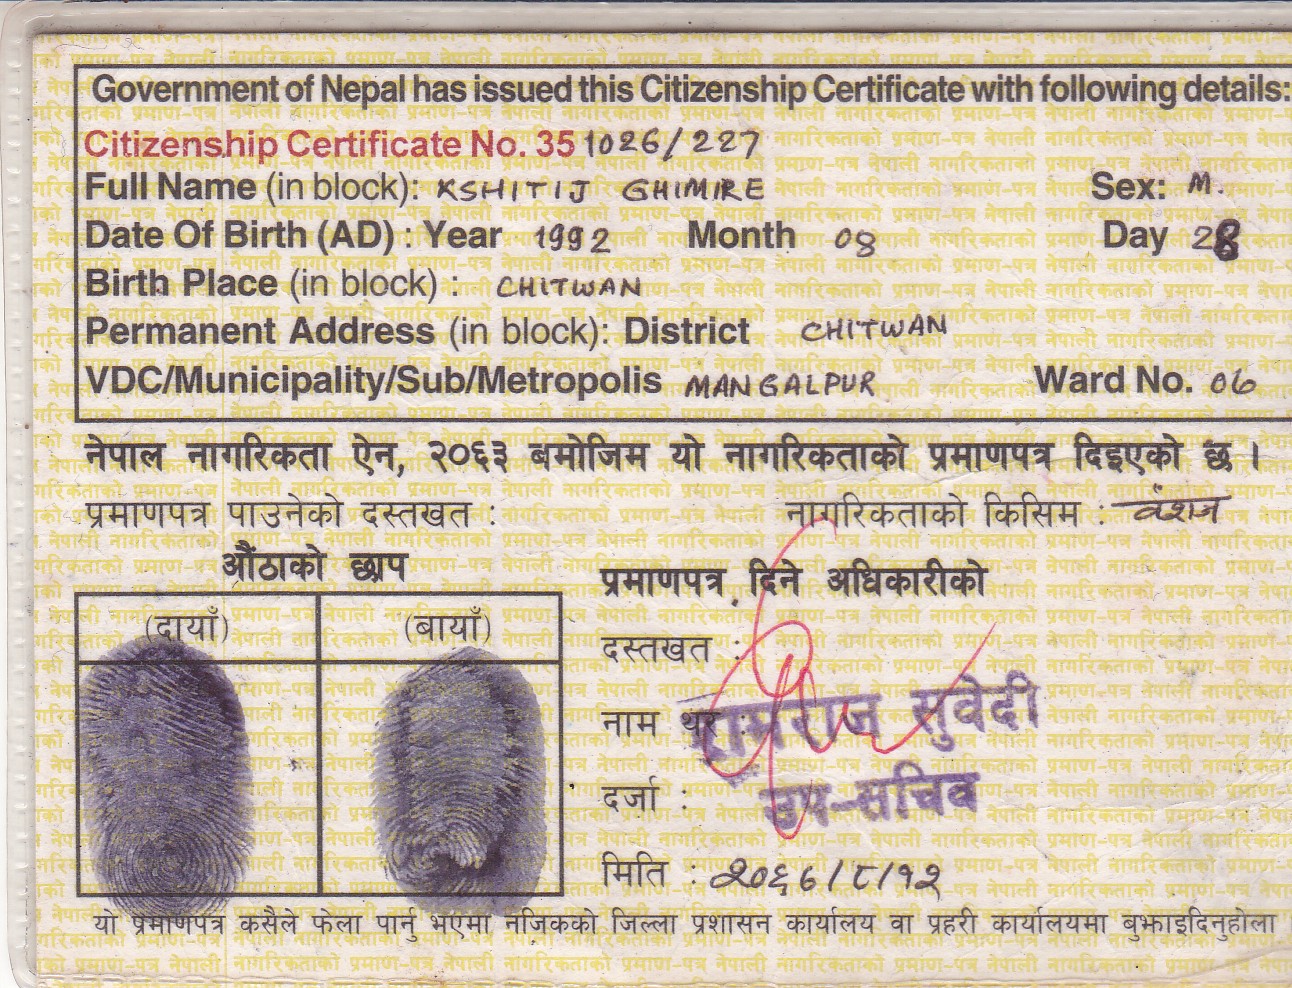 Government of Nepal has issued this Citizenship Certificate with following details:
Citizenship Certificate No. 35 1026/227
Full Name (in block): KSHITIJ GHIMIRE Sex: M.
Date Of Birth (AD) : Year 1992 Month 08 Day 28
Birth Place (in block) : CHITWAN
Permanent Address (in block): District CHITWAN
VDC/Municipality/Sub/Metropolis MANGALPUR Ward No. 06
नेपाल नागरिकता ऐन, २०६३ बमोजिम यो नागरिकताको प्रमाणपत्र दिइएको छ ।
प्रमाणपत्र पाउनेको दस्तखत : नागरिकताको किसिम : वंशज
औंठाको छाप
(दायाँ) (बायाँ)
प्रमाणपत्र दिने अधिकारीको
दस्तखत :
नाम थर : रामराज सुवेदी
दर्जा : उप-सचिव
मिति : २०६६/८/१२
यो प्रमाणपत्र कसैले फेला पार्नु भएमा नजिकको जिल्ला प्रशासन कार्यालय वा प्रहरी कार्यालयमा बुझाइदिनुहोला